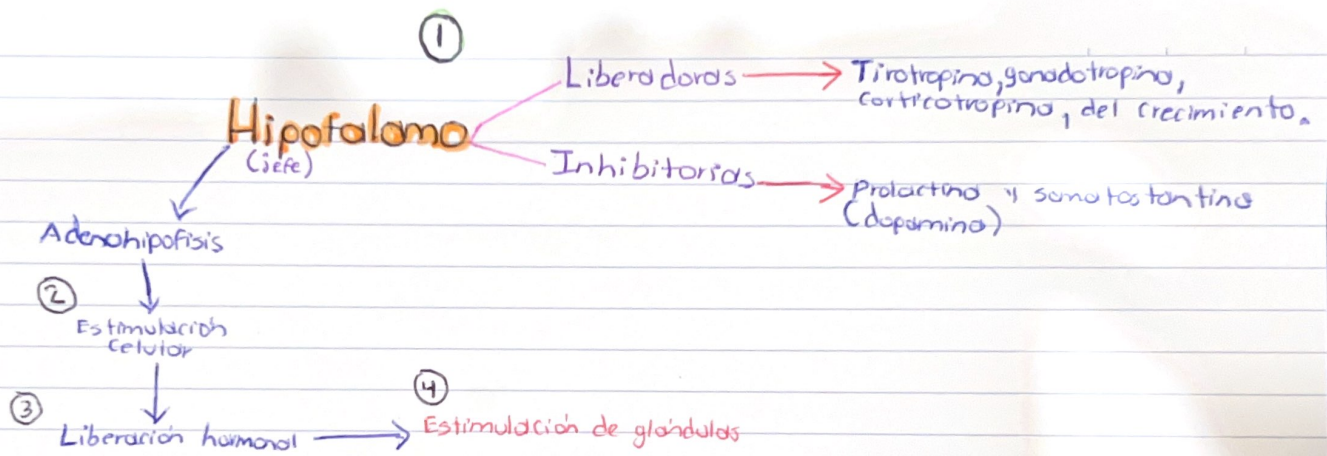 ①
Liberadoras → Tirotropina, gonadotropina,
corticotropina, del crecimiento.
Hipotalamo
(jefe)
Inhibitorias → Prolactina y somatostantina
(dopamina)
Adenohipofisis
②
Estimulación
Celular
③
Liberación hormonal →
④
Estimulación de glándulas